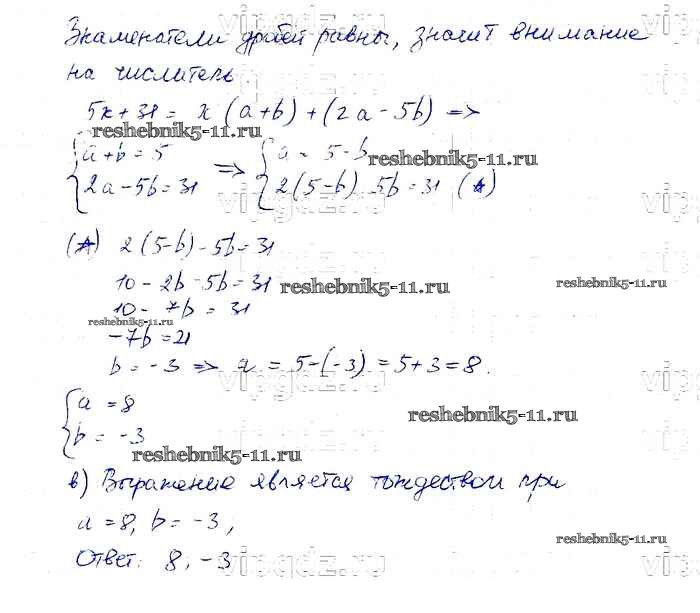 Знаменатели дробей равны, значит внимание
на числитель.
5x + 31 = x (a+b) + (2a - 5b) =>
reshebnik5-11.ru
a+b = 5 => a = 5-b
reshebnik5-11.ru
2a - 5b = 31 2(5-b) 5b = 31 (*)
(*) 2(5-b) - 5b = 31
10 - 2b - 5b = 31
reshebnik5-11.ru
reshebnik5-11.ru
10 - 7b = 31
reshebnik5-11.ru
-7b = 21
b = -3 => a = 5-(-3) = 5+3 = 8.
a = 8
reshebnik5-11.ru
b = -3
reshebnik5-11.ru
в) Выражение является тождеством при
a = 8, b = -3,
reshebnik5-11.ru
Ответ: 8, -3
vipgdz.ru